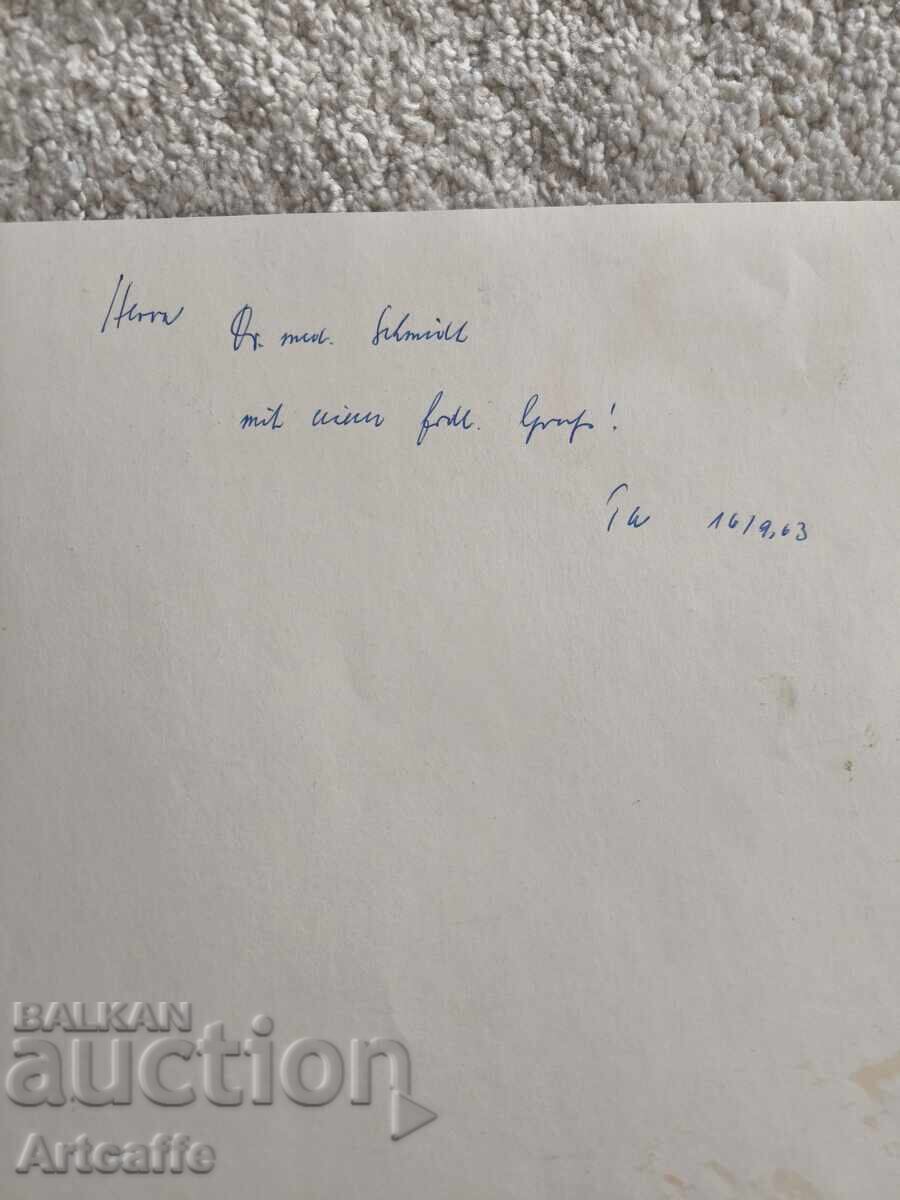 Herrn
Dr. med. Schmidt
mit einem frdl. Gruß!
16/9.63
BALKAN
auction
Artcaffe